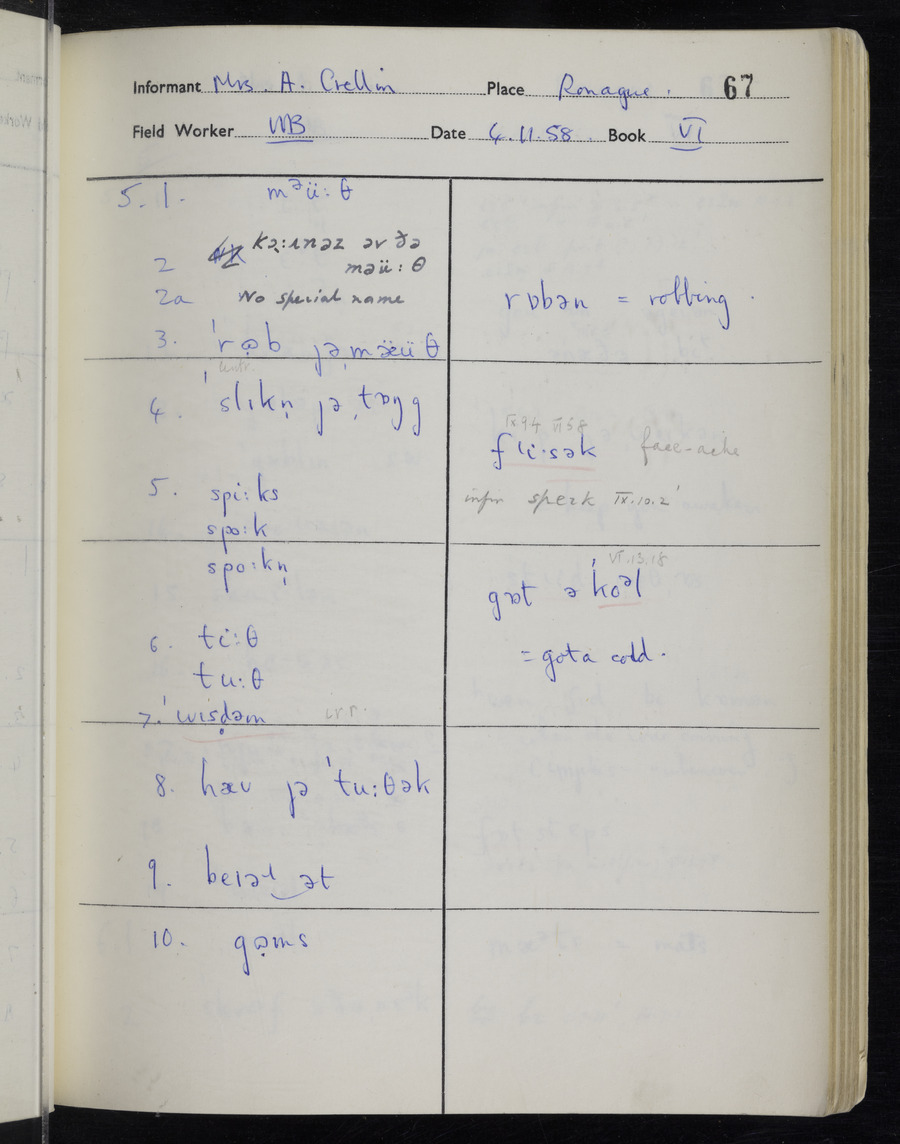 Informant Mrs. A. Crellin Place Ronague. 67
Field Worker WB Date 4.11.58 Book VI
5.1. mᵊü:θ
2 kə̣:ɹnəz əv ðə
məü:θ
2a No special name
3. ˈrɒ̈b jəˌmӕüθ
4. ˈslɪkn̩ jəˌtɒŋg
5. spi:ks
spɔ:k
spo:kn̩
6. ti:θ
tu:θ
7. ˈwisdəm i.r.
8. hæv jə ˈtu:θək
9. beɪəl‿ət
10. gəms
rɒbən = robbing.
IX.9.4 VI 5 8
fˈi·sək face-ache
infin speɪk IX.10.2
VI.13.18
gɒt ə ˈkoᵊl
= got a cold.